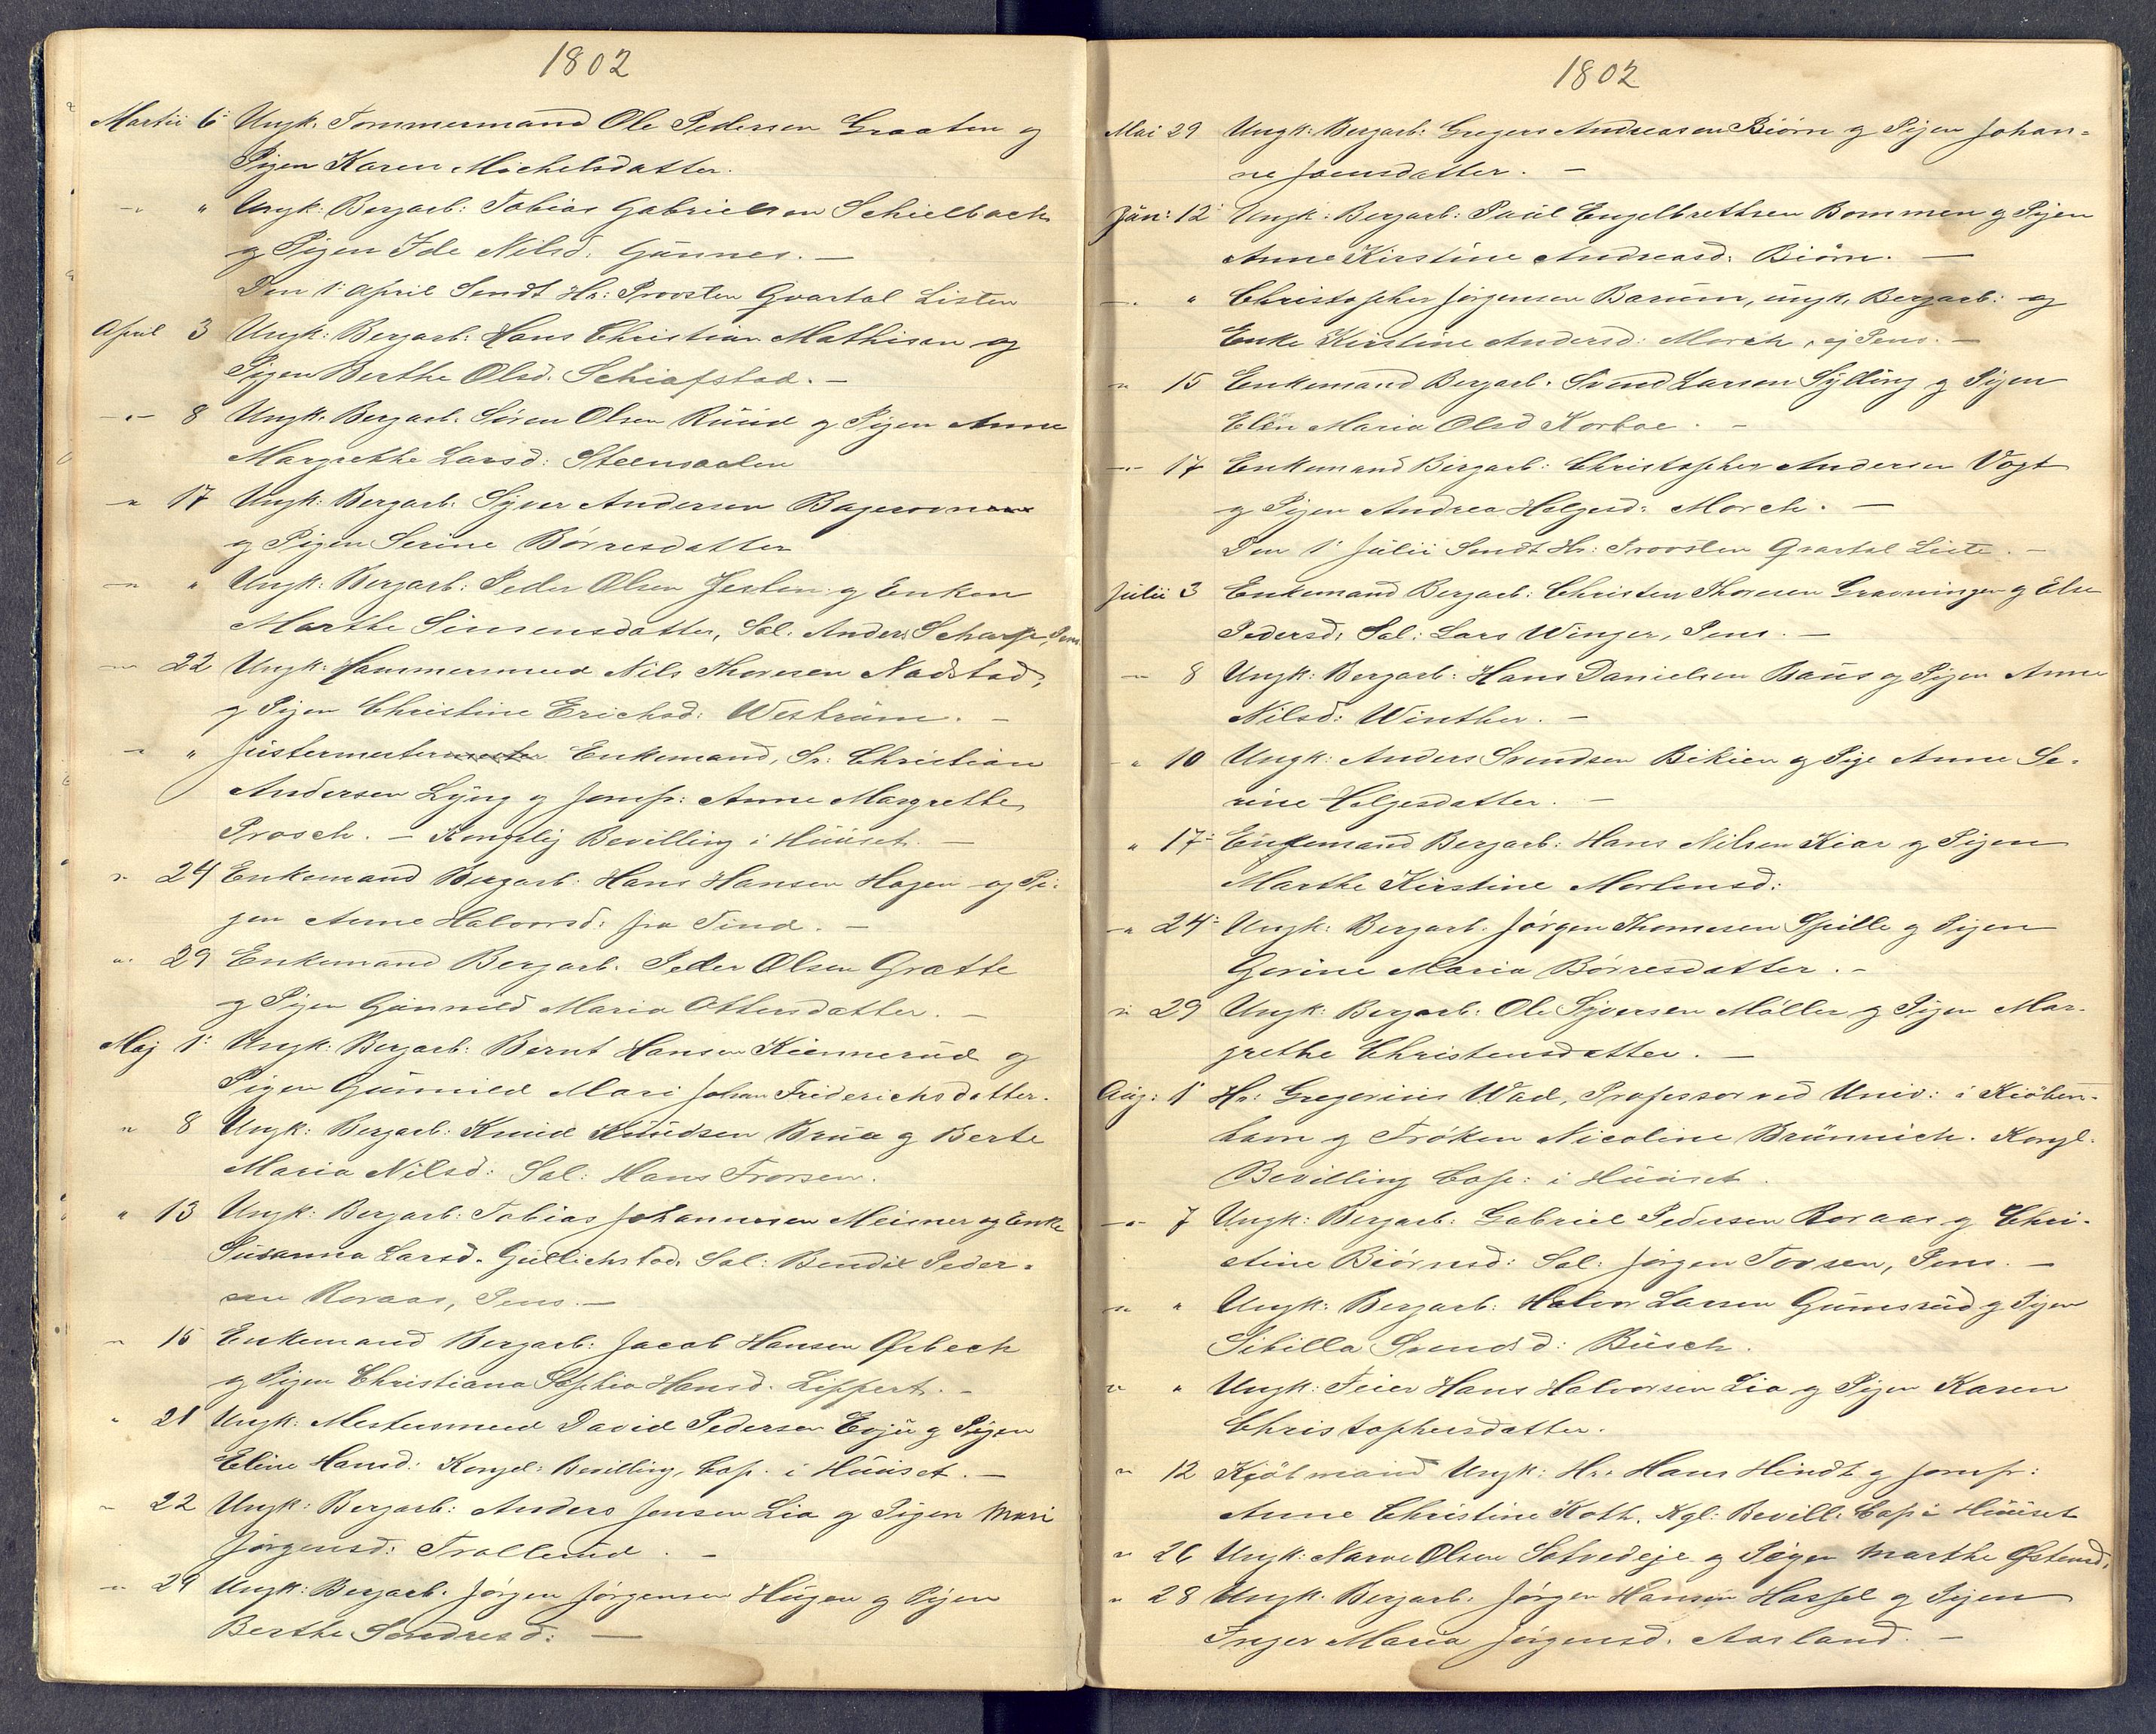 1802
Martii 6 Ungk. Tømmermand Ole Pedersen Graaten og
Pigen Karen Michelsdatter.
-"- " Ungk: Bergarb: Tobias Gabrielsen Schielbach
og Pigen Ide Nilsd. Gunnes. -
Den 1: April Sendt Hr: Provsten Qvartal Listen
April 3 Ungk: Bergarb: Hans Christian Mathisen og
Pigen Berthe Olsd. Schiafstad. -
-"- 8 Ungk. Bergarb. Søren Olsen Ruud og Pigen Anne
Margrethe Larsd: Steensaalen
-"- 17 Ungk: Bergarb. Syver Andersen
og Pigen Serine Børresdatter
-"- " Ungk: Bergarb: Peder Olsen Jeslen og Enken
Marthe Simensdatter, Sal: Anders Scharp, Pens.
-"- 22 Ungk: Hammersmed Nils Thoresen Nadstad,
og Pigen Christine Erichsd: Westrum. -
-"- " Justermester Enkemand, Sr: Christian
Andersen Lyng og Jomfr: Anne Margrethe
Prosch. - Kongelig Bevilling i Huuset. -
" 24 Enkemand Bergarb: Hans Hansen Hagen og Pi-
gen Anne Halvorsd. fra Tind. -
" 29 Enkemand Bergarb. Peder Olsen Grætte
og Pigen Gunnild Maria Ottersdatter. -
Maj 1: Ungk: Bergarb: Bernt Hansen Kiennerud og
Pigen Gunnild Mari Johan Friderichsdatter.
" 8 Ungk: Bergarb: Knud Knudsen Brua og Berte
Maria Nilsd: Sal: Hans Frorsen.
" 13 Ungk: Bergarb: Tobias Johannesen Meisner og Enke
Susanna Larsd. Gullichstad. Sal: Bendix Peder-
sen Roraas, Pens. -
" 15 Enkemand Bergarb: Jacob Hansen Ørbech
og Pigen Christiana Sophia Hansd. Lippert. -
" 21 Ungk: Mestersmed David Pedersen Evju og Pigen
Eline Hansd: Kongel: Bevilling, Cop. i Huuset. -
" 22 Ungk: Bergarb: Anders Jensen Lia og Pigen Mari
Jørgensd: Trollerud. -
" 29 Ungk: Bergarb. Jørgen Jørgensen Hugen og Pigen
Berthe Sondresd: -
1802
Mai 29 Ungk: Bergarb: Gregers Andreasen Biørn og Pigen Johan-
ne Joensdatter. -
Jun: 12 Ungk: Bergarb: Paul Engelbrethsen Bommen og Pigen
Anne Kirstine Andreasd: Biørn. -
-"- " Christopher Jørgensen Barum, ungk. Bergarb: og
Enke Kirstine Andersd: Morch, ej Pens. -
" 15 Enkemand Bergarb. Svend Larsen Sylling og Pigen
Elen Maria Olsd Korboe. -
-"- 17 Enkemand Bergarb: Christopher Andersen Vogt
og Pigen Andrea Helgesd: Morch. -
Den 1: Julii Sendt Hr: Provsten Qvartal Liste. -
Julii 3 Enkemand Bergarb: Christen Thoresen Gravningen og Else
Pedersd: Sal: Lars Winger, Pens. -
-"- 8 Ungk: Bergarb: Hans Danielsen Baus og Pigen Anne
Nilsd: Winther. -
" 10 Ungk: Anders Svendsen Bikien og Pige Anne Se-
rine Helgesdatter. -
" 17 Enkemand Bergarb: Hans Nilsen Kiar og Pigen
Marthe Kirstine Mortensd:
-"- 24 Ungk: Bergarb. Jørgen Thomesen Spille og Pigen
Gorine Maria Børresdatter. -
" 29 Ungk: Bergarb: Ole Syversen Møller og Pigen Mar-
grethe Christensdatter. -
Aug: 1 Hr: Gregorius Wad, Professor ved Univ: i Kiøben-
havn og Frøken Nicoline Brünnich. Kongl.
Bevilling Cop: i Huuset.
-"- 7 Ungk: Bergarb: Gabriel Pedersen Roraas og Chri-
stine Biørnsd: Sal: Jørgen Torsen, Pens. -
" " Ungk: Bergarb: Halvor Larsen Gumsrud og Pigen
Sibilla Svendsd: Busch.
" " Ungk: Feier Hans Halvorsen Lia og Pigen Karen
Christophersdatter.
" 12 Kjøbmand Ungk: Hr: Hans Hindt og Jomfr:
Anne Christine Koth. Kgl: Bevill: Cop i Huuset
" 26 Ungk: Narve Olsen Solvedeje og Pigen Marthe Østensd.
" 28 Ungk. Bergarb. Jørgen Hansen Hassel og Pigen
Inger Maria Jørgensd. Aasland. -